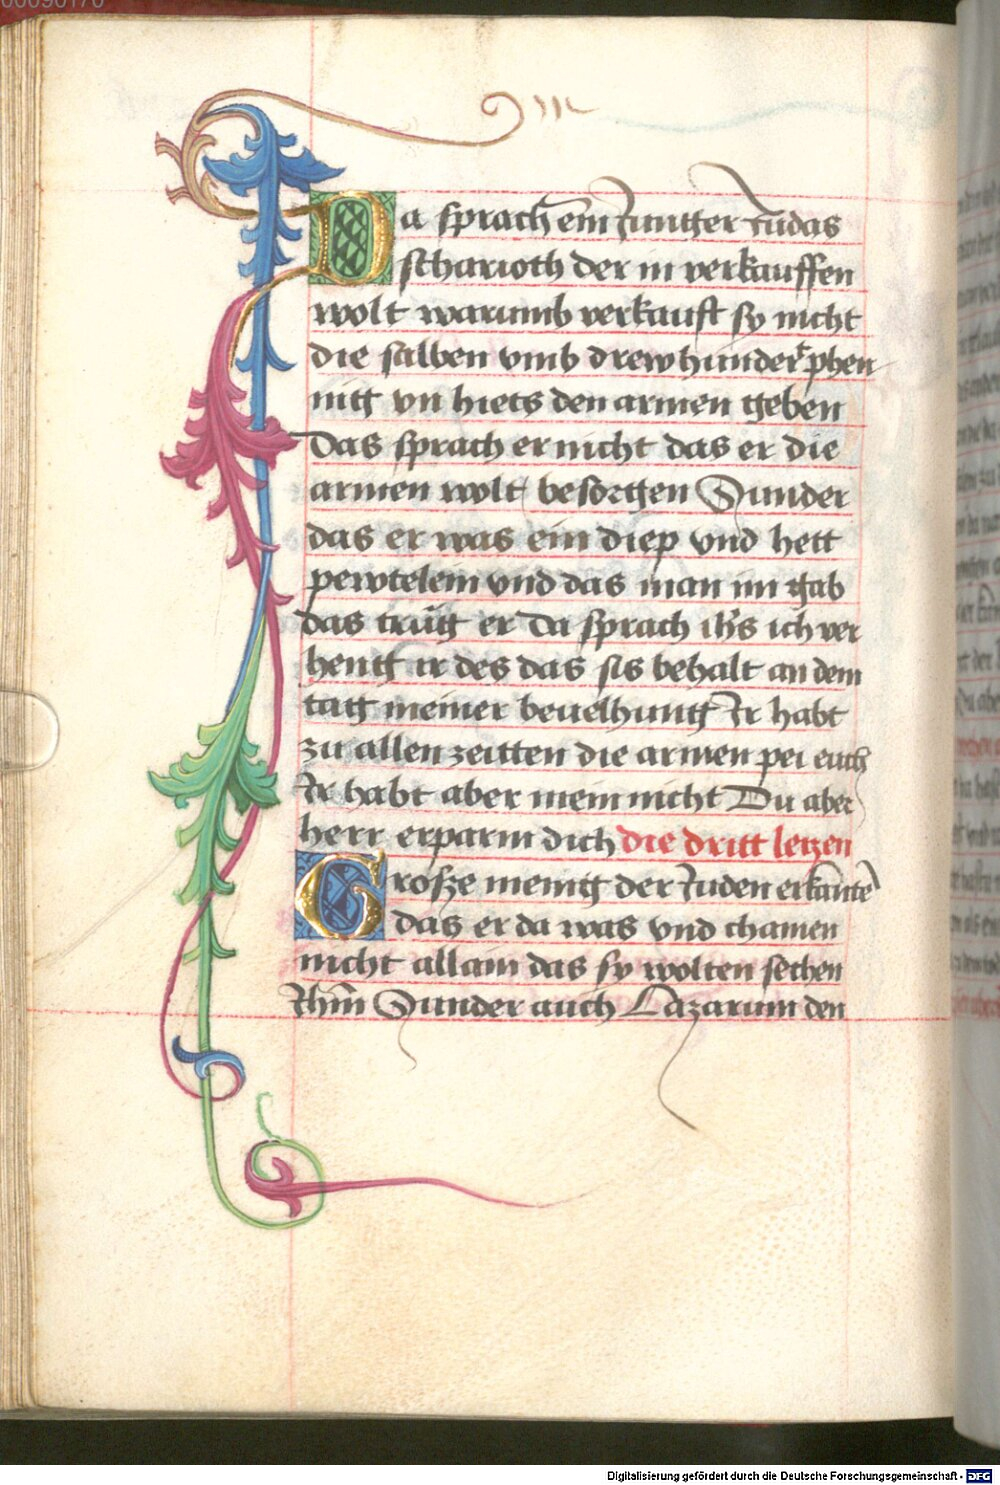 00090170
Da sprach ein Jungger Judas
scharioth der in verkauffen
wolt warumb verkauft sy nicht
die salben vmb drewhundert phen
nig vn hiets den armen geben
Das sprach er nicht das er die
armen wolt besorgen Sunder
das er was ein diep vnd hett
pewtelein vnd das man im gab
das trůg er Da sprach ihs ich ver
heng ir des das sis behalt an dem
tag meiner beuelhung Ir habt
zu allen zeitten die armen pei euch
Ir habt aber mein nicht Du aber
herr erparm dich die dritt letzen
Grosze menig der Juden erkante
das er da was vnd chamen
nicht allain das sy wolten sechen
Jhm Sunder auch Lazarum den
Digitalisierung gefördert durch die Deutsche Forschungsgemeinschaft - DFG